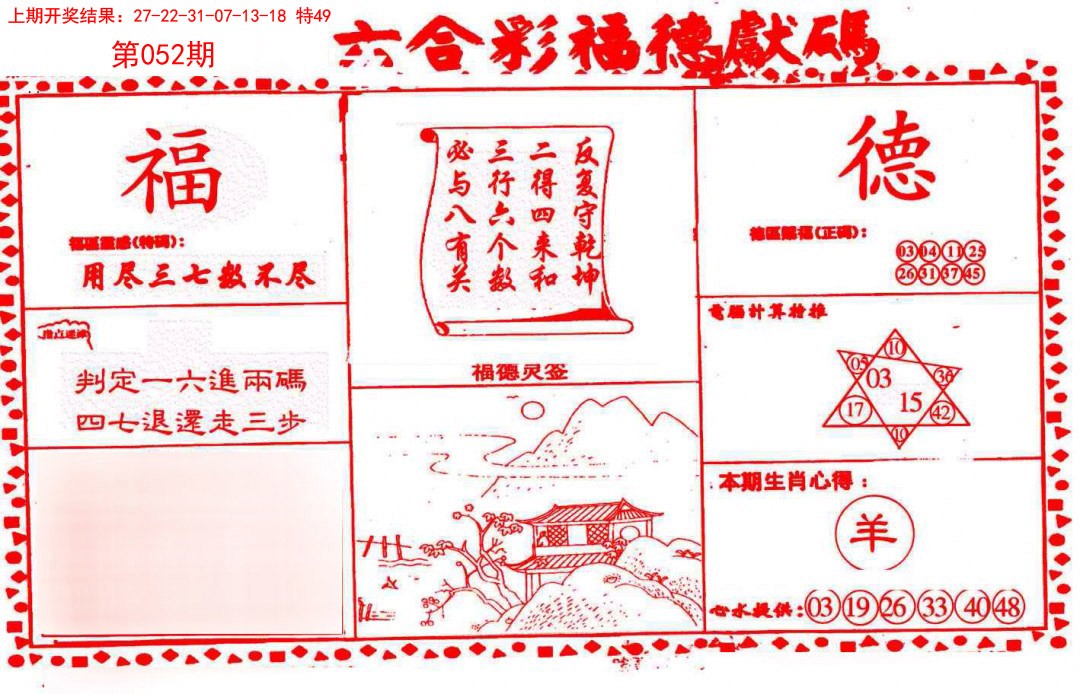 上期开奖结果：27-22-31-07-13-18 特49
第052期
六合彩福德獻碼
福
福區靈感(特碼)：
用尽三七数不尽
判定一六進兩碼
四七退還走三步
反复守乾坤
二得四来和
三行六个数
必与八有关
福德灵签
德
德區賜福(正碼)：
03 04 11 25
26 31 37 45
電腦計算榜推
10
05 03 36
17 15 42
10
本期生肖心得：
羊
心水提供：03 19 26 33 40 48